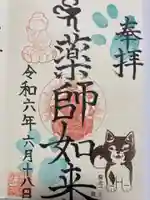 奉拝
薬師如来
令和六年六月十八日